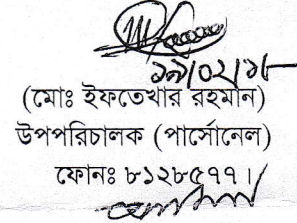 ১৯/০২/১৮
(মোঃ ইফতেখার রহমান)
উপপরিচালক (পার্সোনেল)
ফোনঃ ৮১২৮৫৭৭।